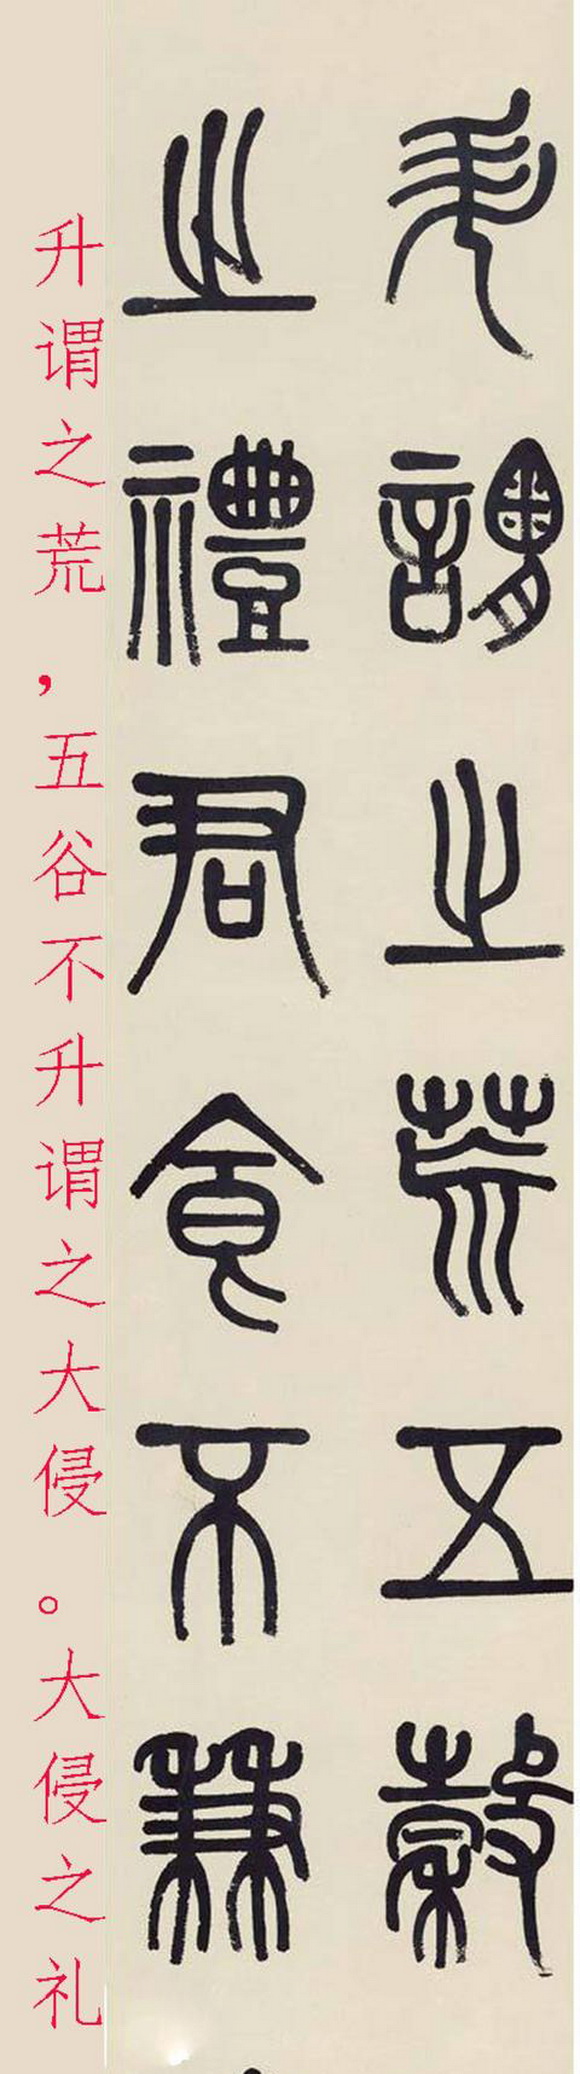 升謂之荒五穀
之禮君食不兼
升谓之荒，五谷不升谓之大侵。大侵之礼